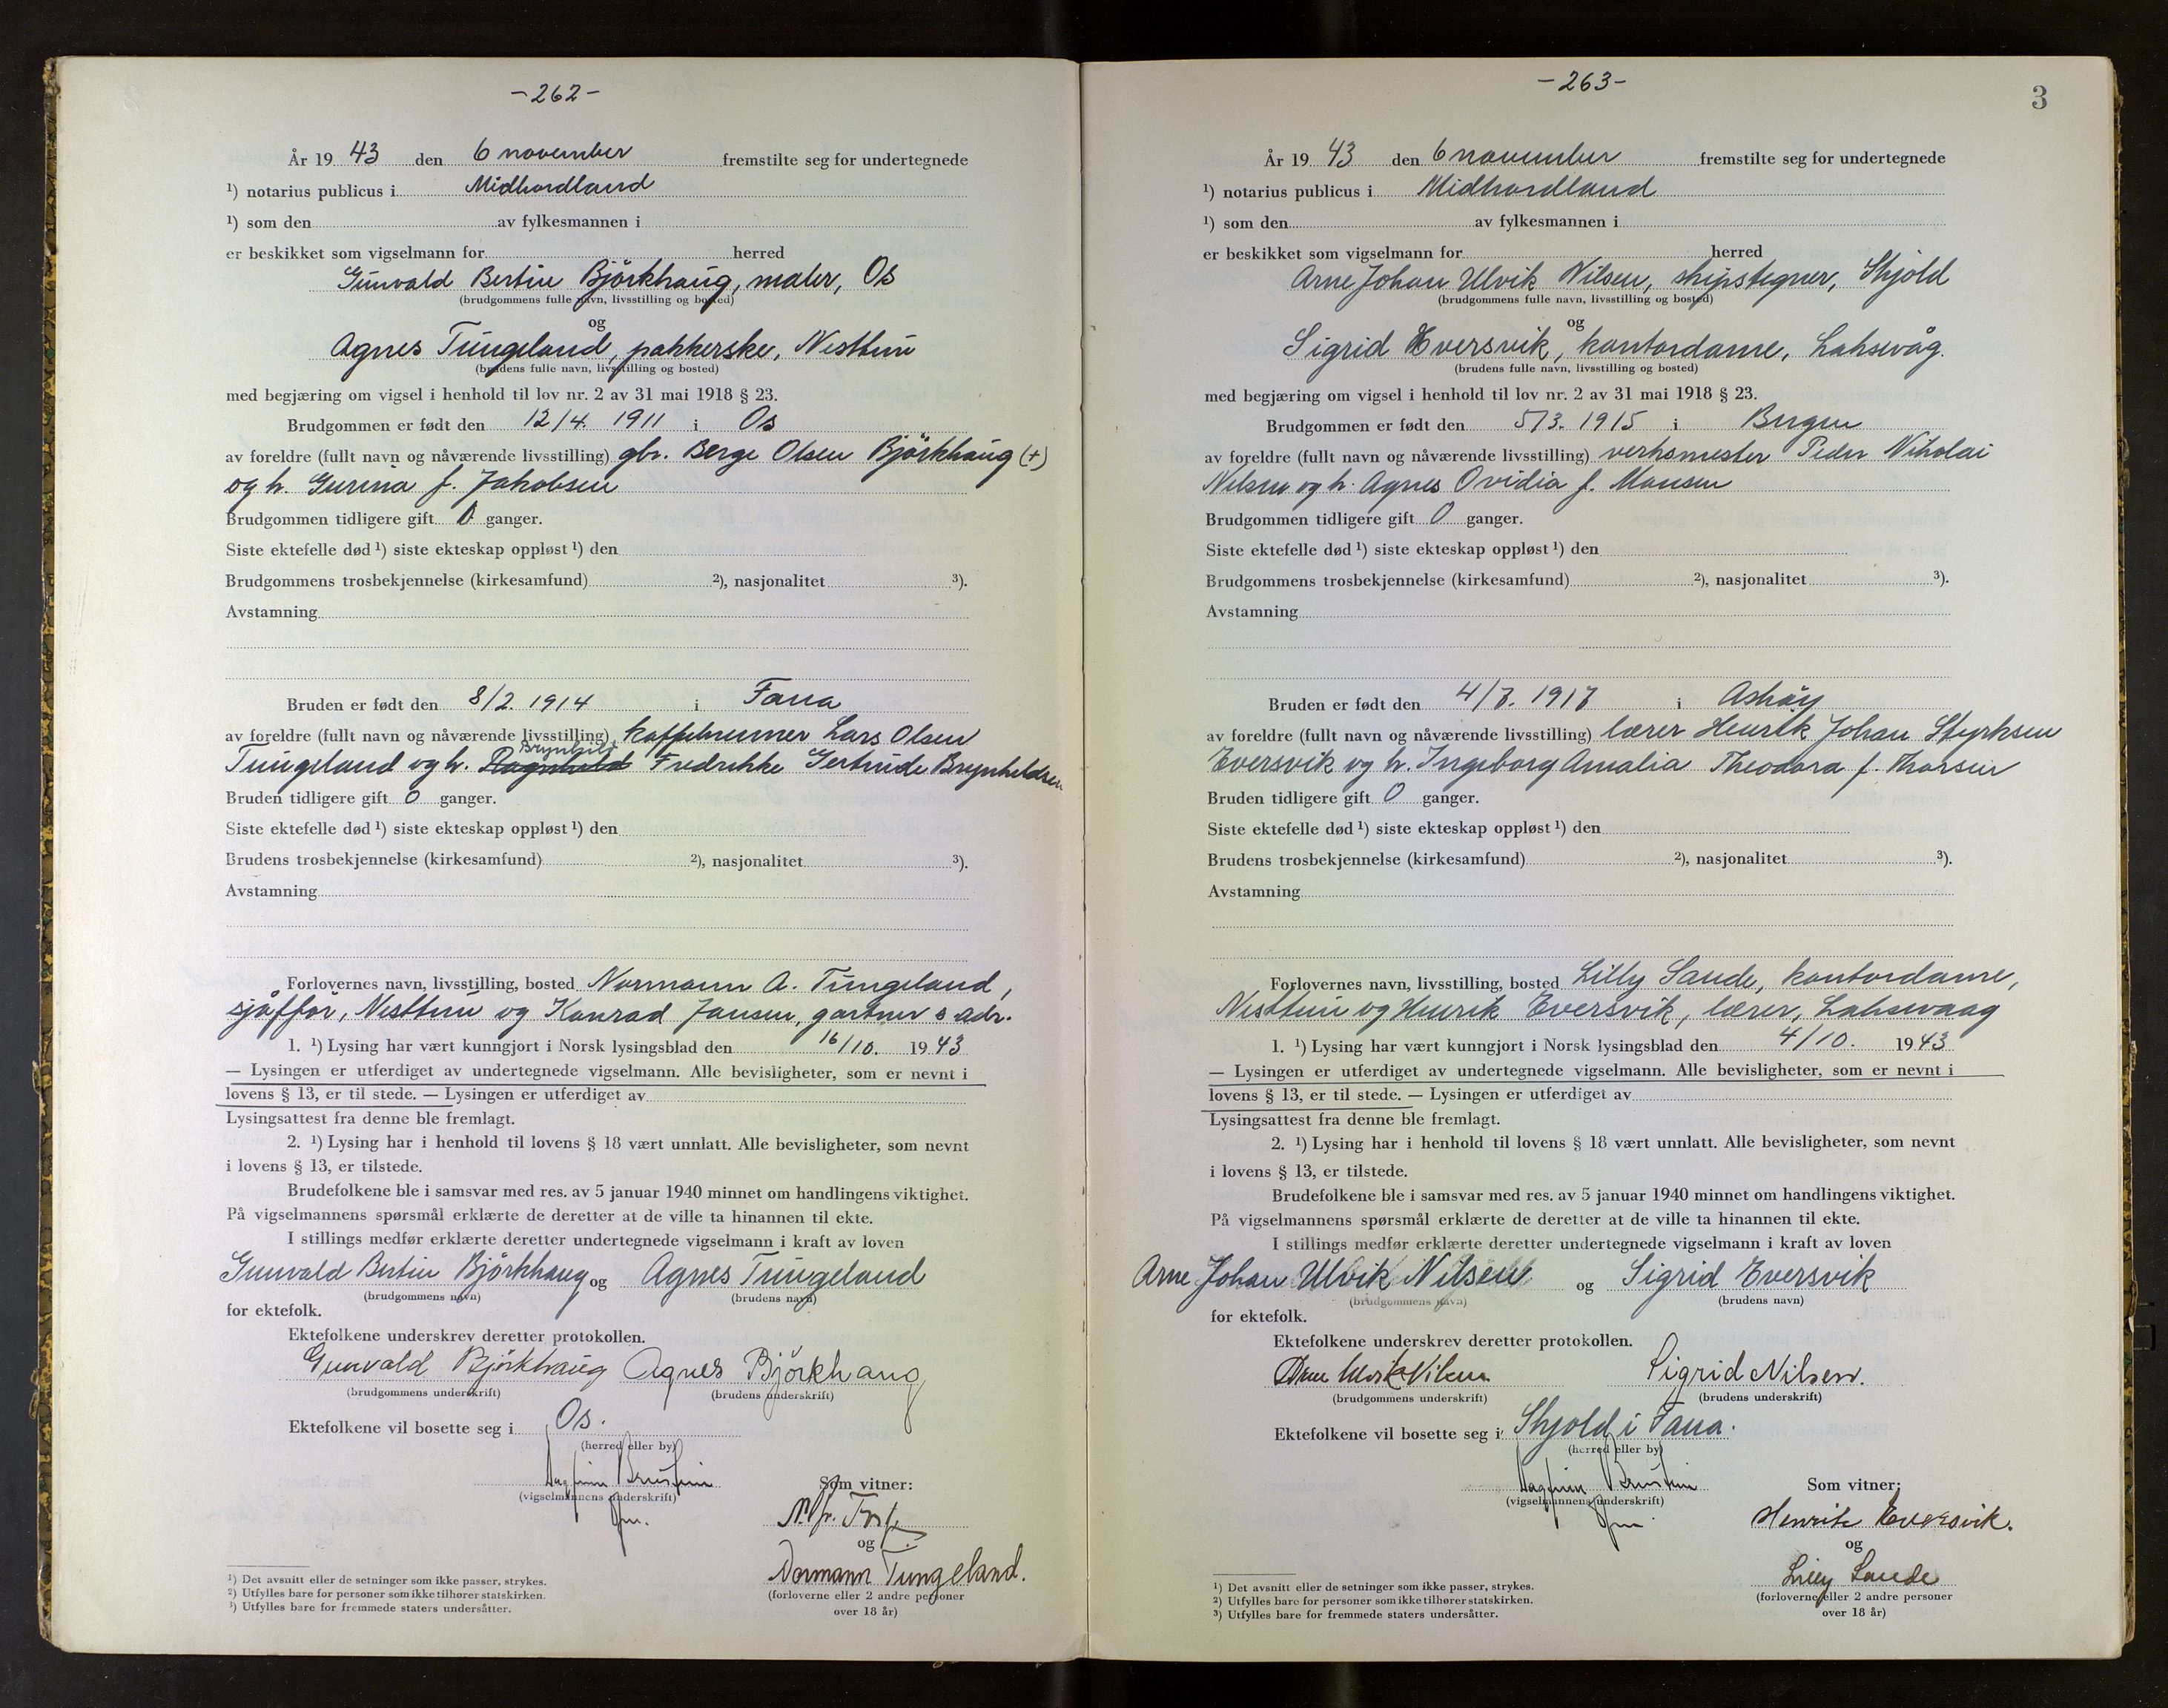 -262-
År 19 43 den 6 november fremstilte seg for undertegnede
¹) notarius publicus i Midhordland
¹) som den av fylkesmannen i
er beskikket som vigselmann for herred
Gunvald Bertin Björkhaug, maler, Os
(brudgommens fulle navn, livsstilling og bosted)
og
Agnes Tungeland, pakkerske, Nesttun
(brudens fulle navn, livsstilling og bosted)
med begjæring om vigsel i henhold til lov nr. 2 av 31 mai 1918 § 23.
Brudgommen er født den 12/4. 1911 i Os
av foreldre (fullt navn og nåværende livsstilling) gbr. Berge Olsen Björkhaug (+)
og h. Gurina f. Jakobsen
Brudgommen tidligere gift 0 ganger.
Siste ektefelle død ¹) siste ekteskap oppløst ¹) den
Brudgommens trosbekjennelse (kirkesamfund) ²), nasjonalitet ³).
Avstamning
Bruden er født den 8/2. 1914 i Fana
av foreldre (fullt navn og nåværende livsstilling) kaffebrenner Lars Olsen
Brynhild
Tungeland og h. Ragnhild Fredrikke Gertrude Brynhildsen
Bruden tidligere gift 0 ganger.
Siste ektefelle død ¹) siste ekteskap oppløst ¹) den
Brudens trosbekjennelse (kirkesamfund) ²), nasjonalitet ³).
Avstamning
Forlovernes navn, livsstilling, bosted Normann A. Tungeland,
sjåffør, Nesttun og Konrad Jansen, gartner s adr.
1. ¹) Lysing har vært kunngjort i Norsk lysingsblad den 16/10. 19 43
— Lysingen er utferdiget av undertegnede vigselmann. Alle bevisligheter, som er nevnt i
lovens § 13, er til stede. — Lysingen er utferdiget av
Lysingsattest fra denne ble fremlagt.
2. ¹) Lysing har i henhold til lovens § 18 vært unnlatt. Alle bevisligheter, som nevnt
i lovens § 13, er tilstede.
Brudefolkene ble i samsvar med res. av 5 januar 1940 minnet om handlingens viktighet.
På vigselmannens spørsmål erklærte de deretter at de ville ta hinannen til ekte.
I stillings medfør erklærte deretter undertegnede vigselmann i kraft av loven
Gunvald Bertin Björkhaug og Agnes Tungeland
(brudgommens navn) (brudens navn)
for ektefolk.
Ektefolkene underskrev deretter protokollen.
Gunvald Björkhaug Agnes Björkhaug
(brudgommens underskrift) (brudens underskrift)
Ektefolkene vil bosette seg i Os.
(herred eller by)
Dagfinn
Som vitner:
(vigselmannens underskrift)
og
Normann Tungeland.
(forloverne eller 2 andre personer
over 18 år)
¹) Det avsnitt eller de setninger som ikke passer, strykes.
²) Utfylles bare for personer som ikke tilhører statskirken.
³) Utfylles bare for fremmede staters undersåtter.
-263-
3
År 19 43 den 6 november fremstilte seg for undertegnede
¹) notarius publicus i Midhordland
¹) som den av fylkesmannen i
er beskikket som vigselmann for herred
Arne Johan Ulvik Nilsen, skipstegner, Skjold
(brudgommens fulle navn, livsstilling og bosted)
og
Sigrid Eversvik, kontordame, Laksevåg.
(brudens fulle navn, livsstilling og bosted)
med begjæring om vigsel i henhold til lov nr. 2 av 31 mai 1918 § 23.
Brudgommen er født den 5/3. 1915 i Bergen
av foreldre (fullt navn og nåværende livsstilling) verksmester Peder Nikolai
Nilsen og h. Agnes Ovidia f. Monsen
Brudgommen tidligere gift 0 ganger.
Siste ektefelle død ¹) siste ekteskap oppløst ¹) den
Brudgommens trosbekjennelse (kirkesamfund) ²), nasjonalitet ³).
Avstamning
Bruden er født den 4/7. 1917 i Askøy
av foreldre (fullt navn og nåværende livsstilling) lærer Henrik Johan Styrksen
Eversvik og h. Ingeborg Amalia Theodora f. Thorsen
Bruden tidligere gift 0 ganger.
Siste ektefelle død ¹) siste ekteskap oppløst ¹) den
Brudens trosbekjennelse (kirkesamfund) ²), nasjonalitet ³).
Avstamning
Forlovernes navn, livsstilling, bosted Lilly Sande, kontordame,
Nesttun og Henrik Eversvik, lærer, Laksevaag
1. ¹) Lysing har vært kunngjort i Norsk lysingsblad den 4/10. 19 43
— Lysingen er utferdiget av undertegnede vigselmann. Alle bevisligheter, som er nevnt i
lovens § 13, er til stede. — Lysingen er utferdiget av
Lysingsattest fra denne ble fremlagt.
2. ¹) Lysing har i henhold til lovens § 18 vært unnlatt. Alle bevisligheter, som nevnt
i lovens § 13, er tilstede.
Brudefolkene ble i samsvar med res. av 5 januar 1940 minnet om handlingens viktighet.
På vigselmannens spørsmål erklærte de deretter at de ville ta hinannen til ekte.
I stillings medfør erklærte deretter undertegnede vigselmann i kraft av loven
Arne Johan Ulvik Nilsen og Sigrid Eversvik
(brudgommens navn) (brudens navn)
for ektefolk.
Ektefolkene underskrev deretter protokollen.
Arne Ulvik Nilsen Sigrid Nilsen.
(brudgommens underskrift) (brudens underskrift)
Ektefolkene vil bosette seg i Skjold i Fana.
(herred eller by)
Dagfinn
Som vitner:
(vigselmannens underskrift)
Henrik Eversvik.
og
Lilly Sande
(forloverne eller 2 andre personer
over 18 år)
¹) Det avsnitt eller de setninger som ikke passer, strykes.
²) Utfylles bare for personer som ikke tilhører statskirken.
³) Utfylles bare for fremmede staters undersåtter.